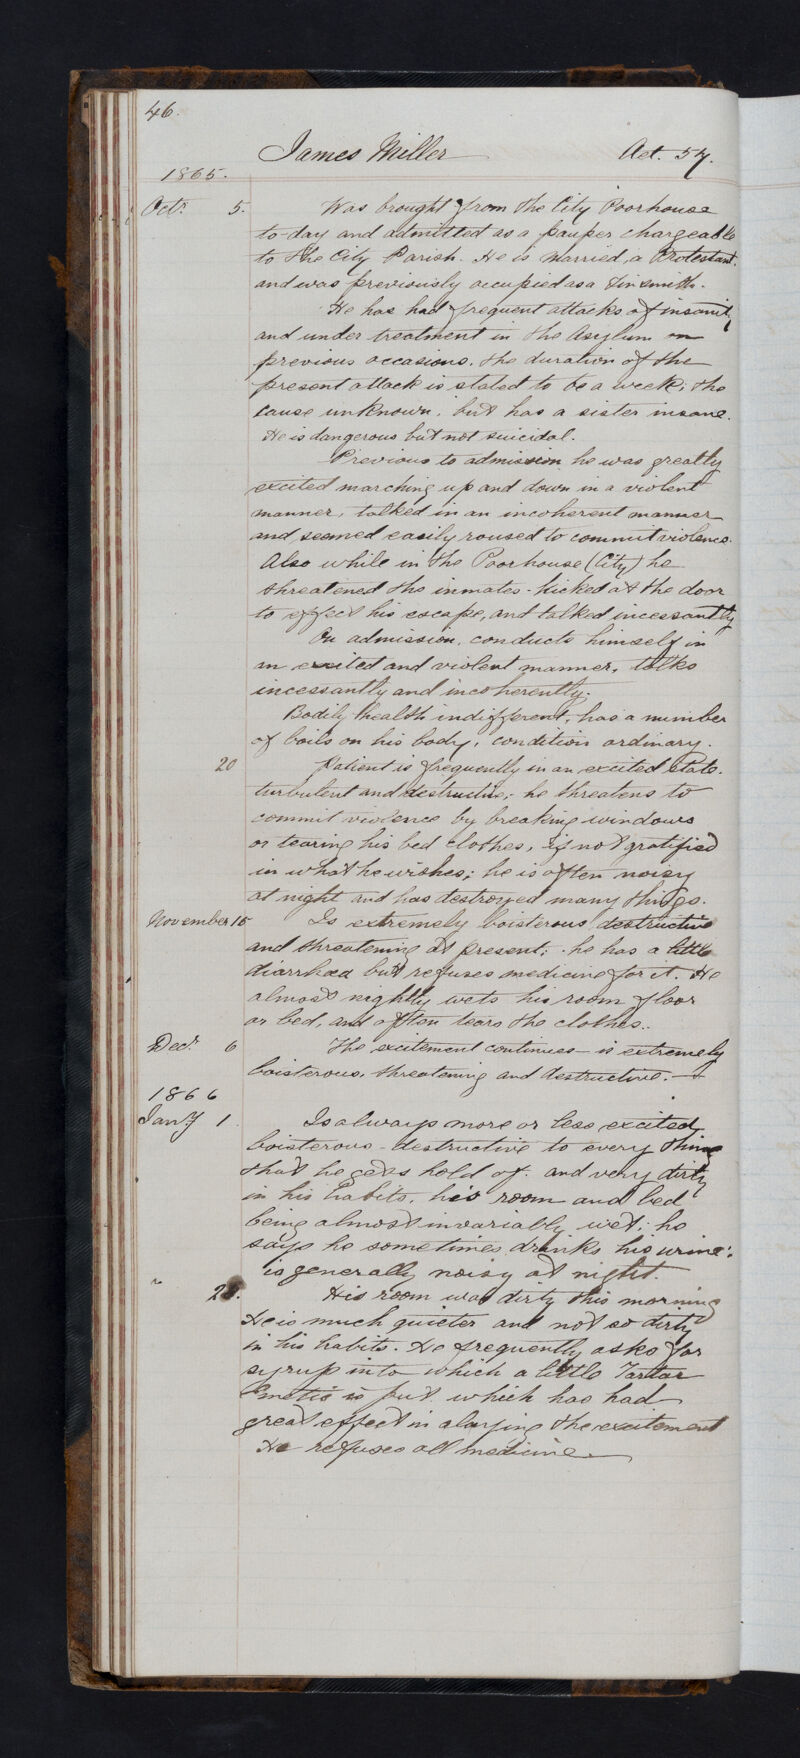 46.
James Miller Aet. 57.
1865.
Octr. 5. Was brought from the City Poorhouse
to-day and admitted as a pauper chargeable
to the City Parish. He is married, a Protestant.
and was previously occupied as a Tinsmith.
He has had frequent attacks of insanity
and under treatment in the Asylum on
previous occasions. the duration of the
present attack is stated to be a week; the
cause unknown, but has a sister insane.
He is dangerous but not suicidal.
Previous to admission he was greatly
excited marching up and down in a violent
manner, talked in an incoherent manner
and seemed easily roused to commit violence.
Also while in the Poorhouse (City) he
threatened the inmates - kicked at the door
to effect his escape, and talked incessantly
On admission, conducts himself in
an excited and violent manner, talks
incessantly and incoherently.
Bodily health indifferent, has a number
of boils on his body, condition ordinary.
20 Patient is frequently in an excited state.
turbulent and destructive; he threatens to
commit violence by breaking windows
or tearing his bed clothes, if not gratified
in what he wishes; he is often noisy
at night and has destroyed many things.
November 15 Is extremely boisterous destructive
and threatening at present; he has a little
diarrhoea but refuses medicine for it. He
almost nightly wets his room floor
or bed, and often tears the clothes.
Decr. 6 The excitement continues - is extremely
boisterous, threatening and destructive.
1866
Jany 1 Is always more or less excited,
boisterous - destructive to every thing
that he gets hold of. and very dirty
in his habits, his room and bed
being almost invariably wet; he
says he sometimes drinks his urine:
is generally noisy at night.
" 28. His room was dirty this morning
He is much quieter and not so dirty
in his habits. He frequently asks for
syrup into which a little Tartar
Emetic is put which has had
great effect in alaying the excitement
He refuses all medicine